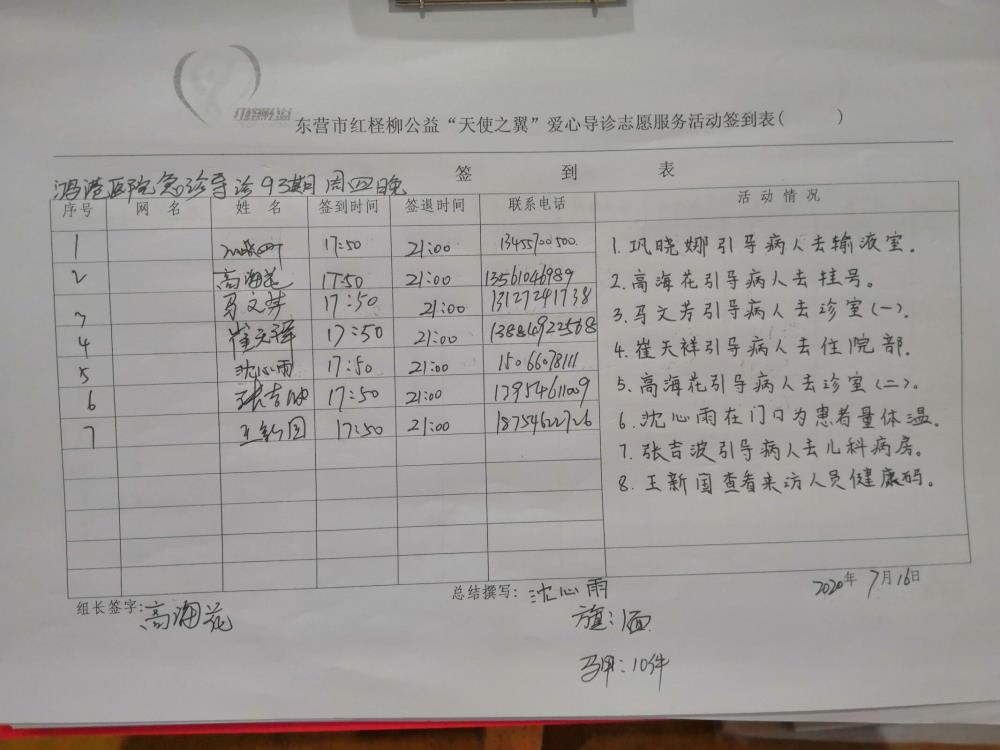 红柽柳公益
东营市红柽柳公益“天使之翼”爱心导诊志愿服务活动签到表( )
签 到 表
鸿港医院急诊导诊93期周四晚
序号 网 名 姓 名 签到时间 签退时间 联系电话 活动情况
1 17:50 21:00 13455700500
2 高海花 17:50 21:00 13561046989
3 马文芳 17:50 21:00 13127241738
4 崔天祥 17:50 21:00 13884922568
5 沈心雨 17:50 21:00 15066078111
6 张吉波 17:50 21:00 13954611009
7 王新国 17:50 21:00 18754622726
1.巩晓娜引导病人去输液室。
2.高海花引导病人去挂号。
3.马文芳引导病人去诊室(一).
4.崔天祥引导病人去住院部.
5.高海花引导病人去诊室(二).
6.沈心雨在门口为患者量体温.
7.张吉波引导病人去儿科病房。
8.王新国查看来访人员健康码。
组长签字:高海花
总结撰写:沈心雨
2020年7月16日
旗:1面
马甲:10件